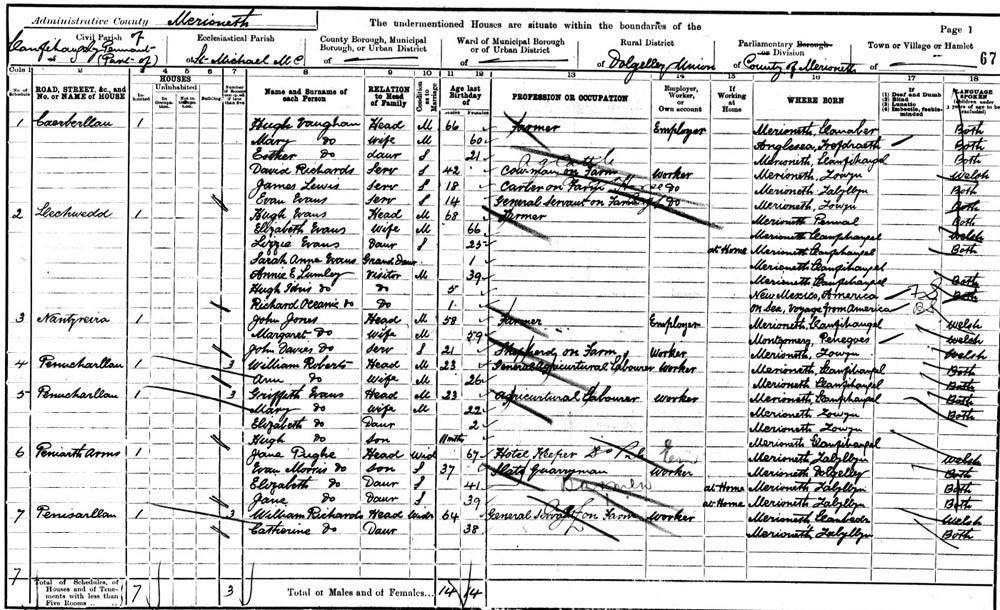 Administrative County Merioneth
The undermentioned Houses are situate within the boundaries of the
Page 1
67
Civil Parish of Llanfihangel y Pennant (Part of)
Ecclesiastical Parish of St. Michael
County Borough, Municipal Borough, or Urban District of
Ward of Municipal Borough or of Urban District of
Rural District of Dolgelley Union
Parliamentary Borough or Division of County of Merioneth
Town or Village or Hamlet of
Cols 1 2 3 4 5 6 7 8 9 10 11 12 13 14 15 16 17 18
No. of Schedule
ROAD, STREET, &c., and No. or NAME of HOUSE
HOUSES
Inhabited
Uninhabited
In Occupation
Not in Occupation
Building
Number of Rooms occupied if less than five
Name and Surname of each Person
RELATION to Head of Family
Condition as to Marriage
Age last Birthday of
Males Females
PROFESSION OR OCCUPATION
Employer, Worker, or Own account
If Working at Home
WHERE BORN
If (1) Deaf and Dumb (2) Blind (3) Lunatic (4) Imbecile, feeble-minded
LANGUAGE SPOKEN (children under 3 years of age to be excluded)
1 Caerberllan 1 Hugh Vaughan Head M 66 Farmer Employer Merioneth, Llanaber Both
Mary do Wife M 60 Anglesea, Trefdraeth Both
Esther do daur S 21 Merioneth, Llanfihangel Both
David Richards Serv S 42 Cowman on Farm Worker Merioneth, Towyn Welsh
James Lewis Serv S 18 Carter on Farm do Merioneth Talyllyn Both
Evan Evans Serv S 14 General Servant on Farm do Merioneth, Towyn Both
2 Llechwedd 1 Hugh Evans Head M 68 Farmer Merioneth Pennal Both
Elizabeth Evans Wife M 66 Merioneth Llanfihangel Welsh
Lizzie Evans Daur S 25 at Home Merioneth Llanfihangel Both
Sarah Anne Evans Grand Daur 1 Merioneth Llanfihangel
Annie E Lumley Visitor M 39 Merioneth Llanfihangel Both
Hugh Idris do Do 5 New Mexico, America Both
Richard Oceanic do Do 1 On Sea, Voyage from America
3 Nantyreira 1 John Jones Head M 58 Farmer Employer Merioneth, Llanfihangel Welsh
Margaret do Wife M 59 Montgomery, Penegoes Welsh
John Davies do Serv S 21 Shepherd on Farm Worker Merioneth, Towyn Welsh
4 Penucharllan 1 3 William Roberts Head M 23 General Agricultural Labourer Worker Merioneth, Llanfihangel Both
Ann do Wife M 26 Merioneth Llanfihangel Both
5 Penucharllan 1 3 Griffith Evans Head M 23 Agricultural Labourer Worker Merioneth Llanfihangel Both
Mary do Wife M 22 Merioneth Towyn Both
Elizabeth do Daur 2 Merioneth Towyn
Hugh do Son 11 mths Merioneth Llanfihangel
6 Peniarth Arms 1 Jane Pughe Head Wid 67 Hotel Keeper Merioneth Talyllyn Welsh
Evan Morris do Son S 37 Slate Quarryman Worker Merioneth Dolgelley Both
Elizabeth do Daur S 41 at Home Merioneth Talyllyn Both
Jane do Daur S 39 at Home Merioneth Talyllyn Both
7 Penisarllan 1 3 William Richards Head Widr 64 General on Farm Worker Merioneth Llanbedr Welsh
Catherine do Daur 38 Merioneth Talyllyn Both
7
Total of Schedules, of Houses and of Tenements with less than Five Rooms 7 3 Total of Males and of Females... 14 14